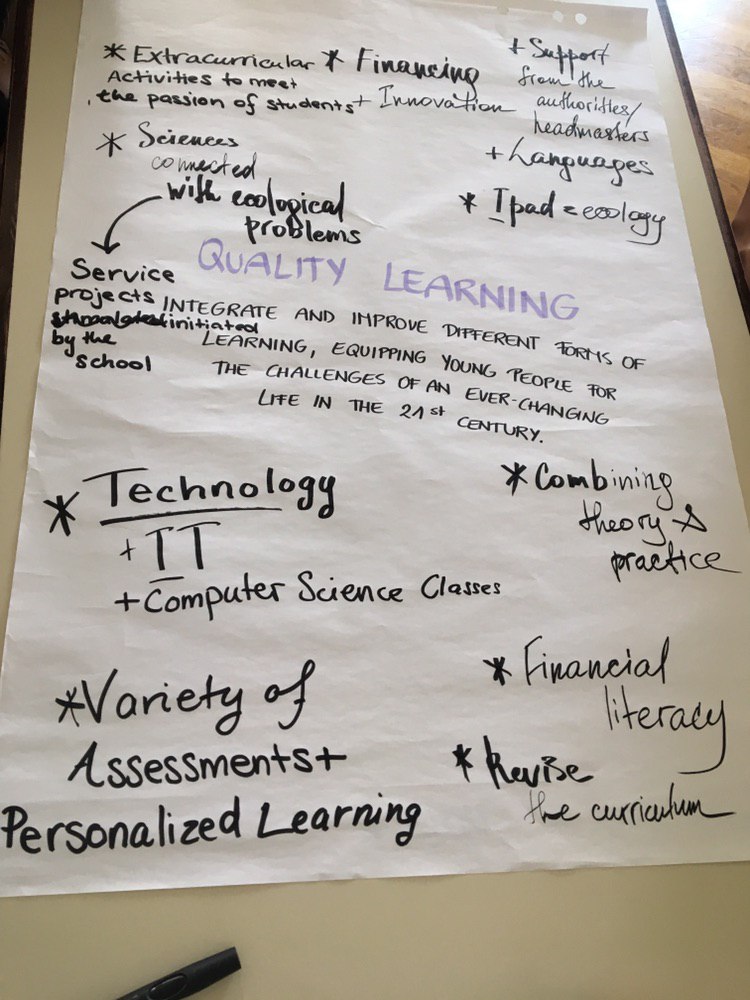 * Extracurricular
Activities to meet
the passion of students
* Financing
+ Innovation
+ Support
from the
authorities/
headmasters
+ Languages
* Ipad = ecology
* Sciences
connected
with ecological
problems
Service
projects
initiated
by the
school
QUALITY LEARNING
INTEGRATE AND IMPROVE DIFFERENT FORMS OF
LEARNING, EQUIPPING YOUNG PEOPLE FOR
THE CHALLENGES OF AN EVER-CHANGING
LIFE IN THE 21st CENTURY.
* Technology
+ IT
+ Computer Science Classes
* Combining
theory &
practice
* Variety of
Assessments +
Personalized Learning
* Financial
literacy
* Revise
the curriculum